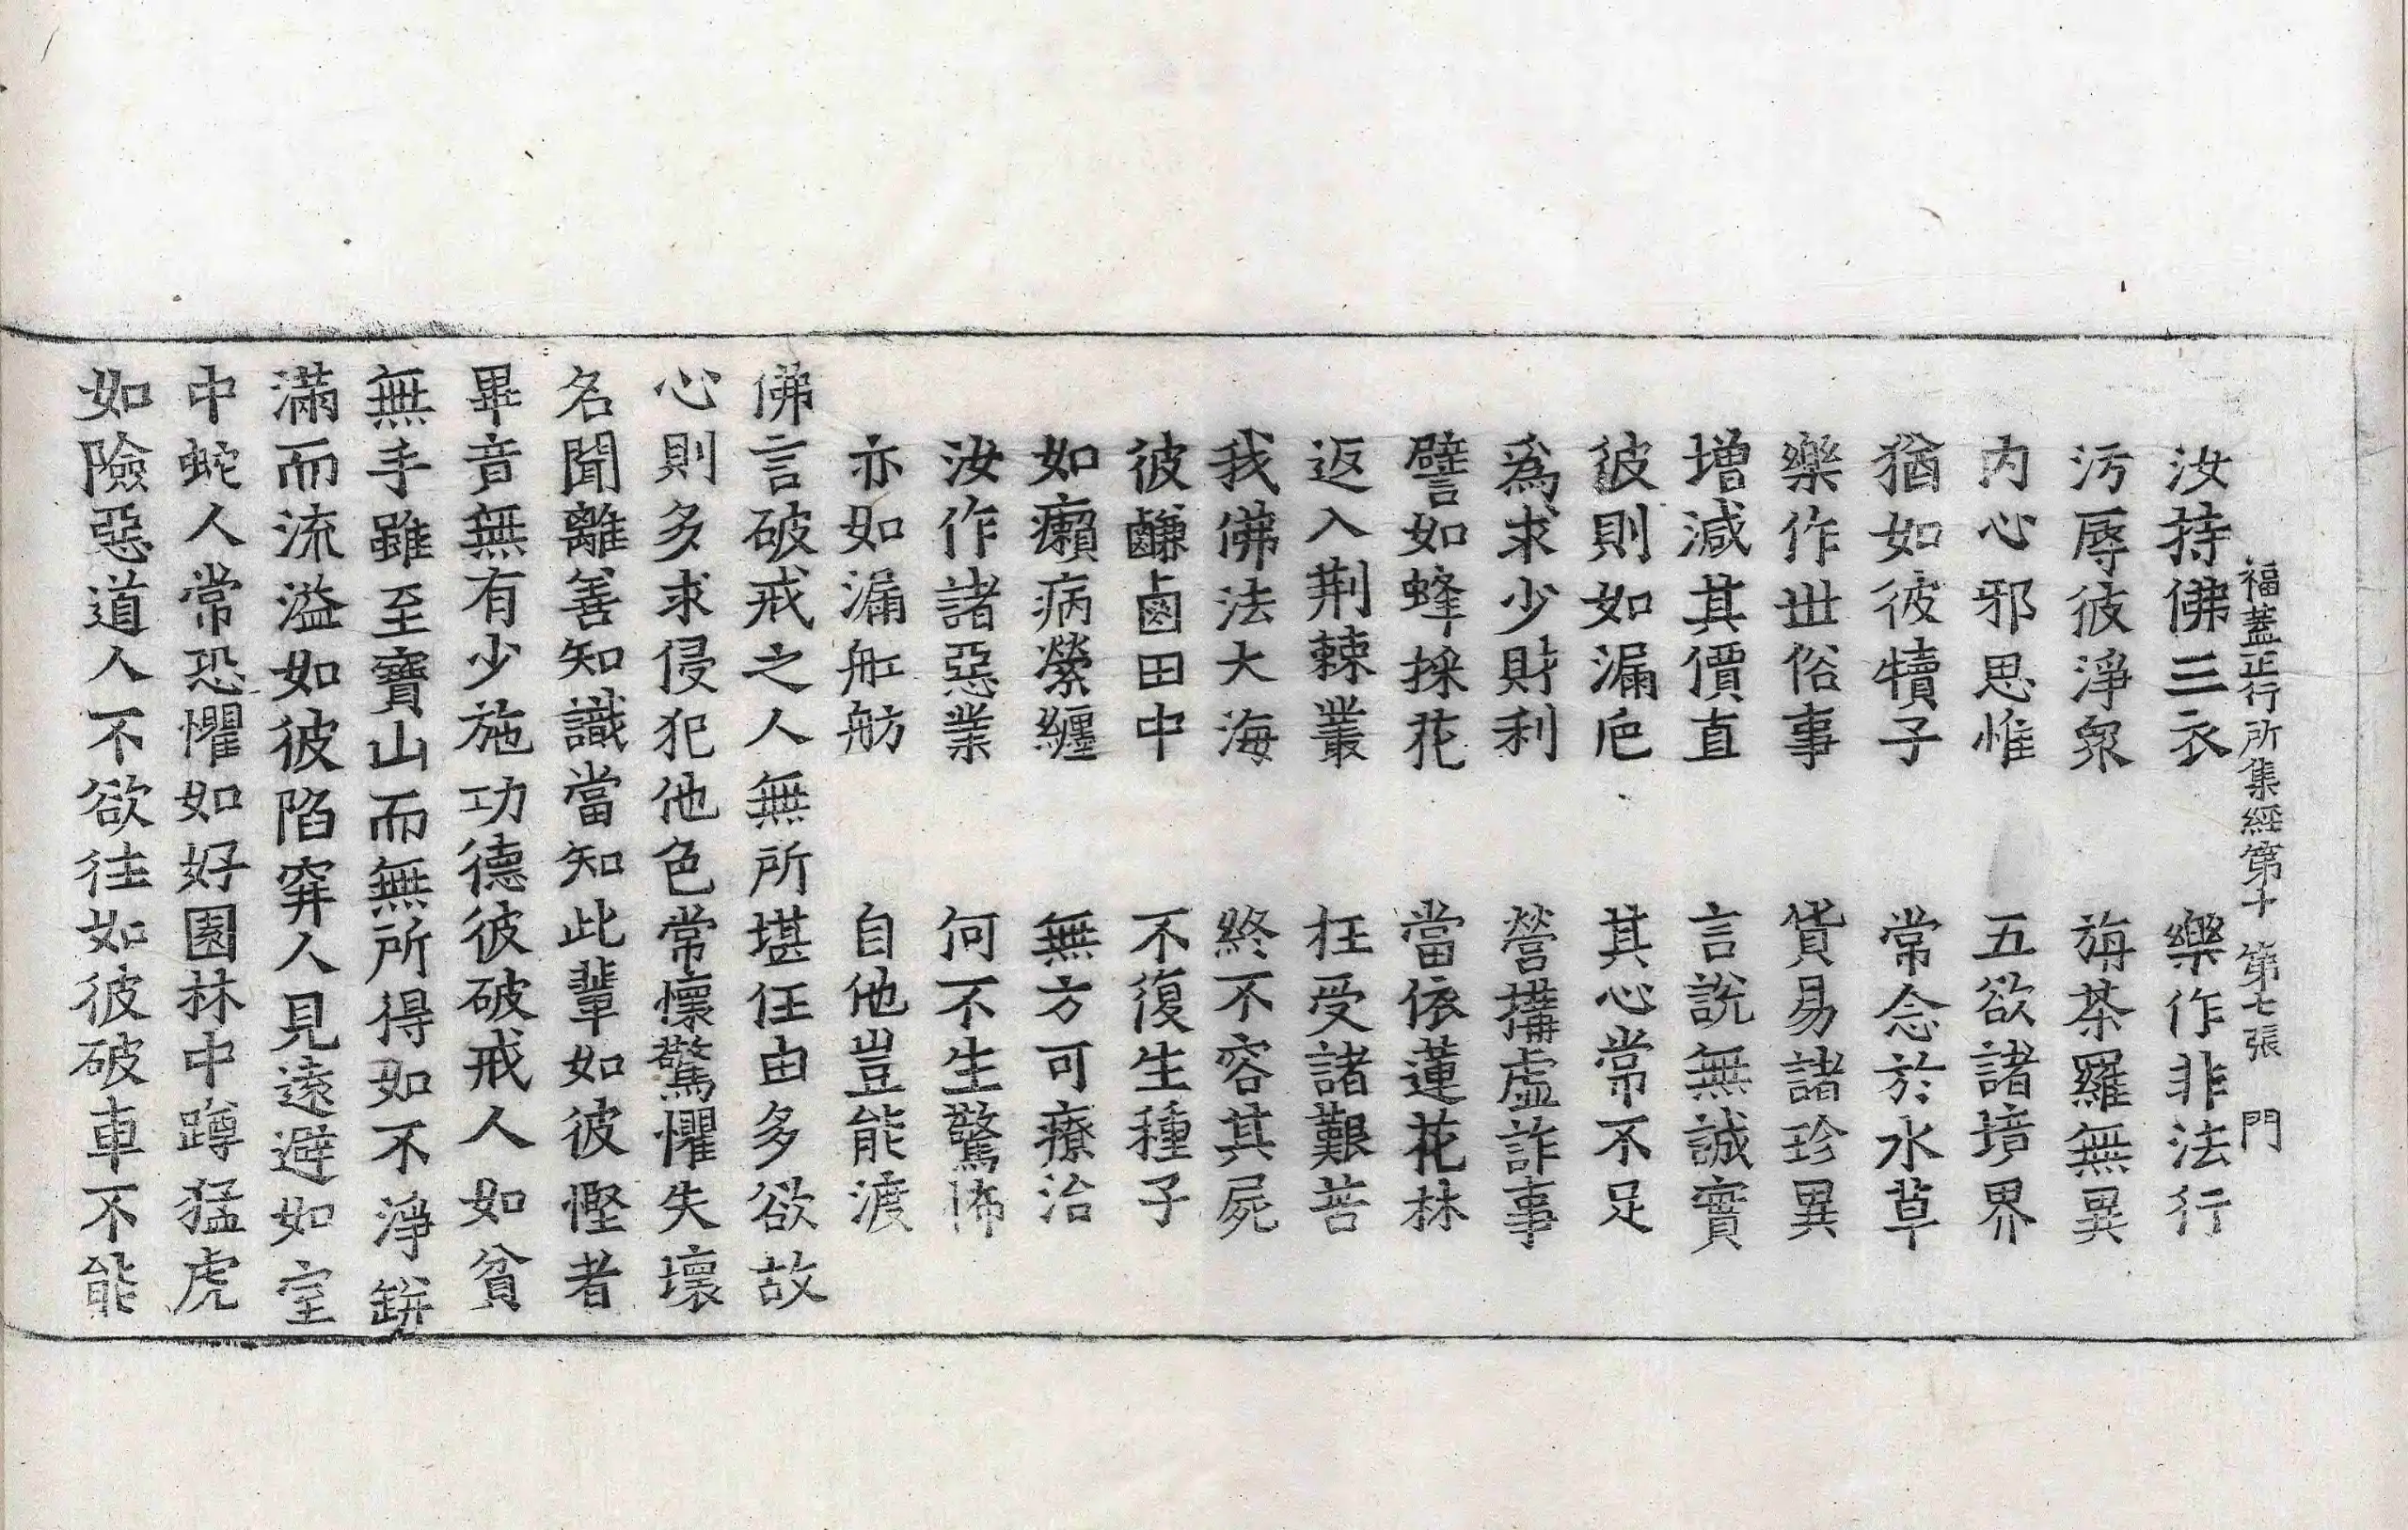 福蓋正行所集經第十 第七張 門
汝持佛三衣 樂作非法行
污辱彼淨衆 旃茶羅無異
内心邪思惟 五欲諸境界
猶如彼犢子 常念於水草
樂作世俗事 貨易諸珍異
增減其價直 言說無誠實
彼則如漏巵 其心常不足
爲求少財利 營搆虛詐事
譬如蜂採花 當依蓮花林
返入荆棘叢 枉受諸艱苦
我佛法大海 終不容其屍
彼鹻鹵田中 不復生種子
如癩病縈纏 無方可療治
汝作諸惡業 何不生驚怖
亦如漏舡舫 自他豈能渡
佛言破戒之人無所堪任由多欲故
心則多求侵犯他色常懷驚懼失壞
名聞離善知識當知此輩如彼慳者
畢竟無有少施功德彼破戒人如貧
無手雖至寶山而無所得如不淨缾
滿而流溢如彼陷穽人見遠避如室
中蛇人常恐懼如好園林中蹲猛虎
如險惡道人不欲往如彼破車不能